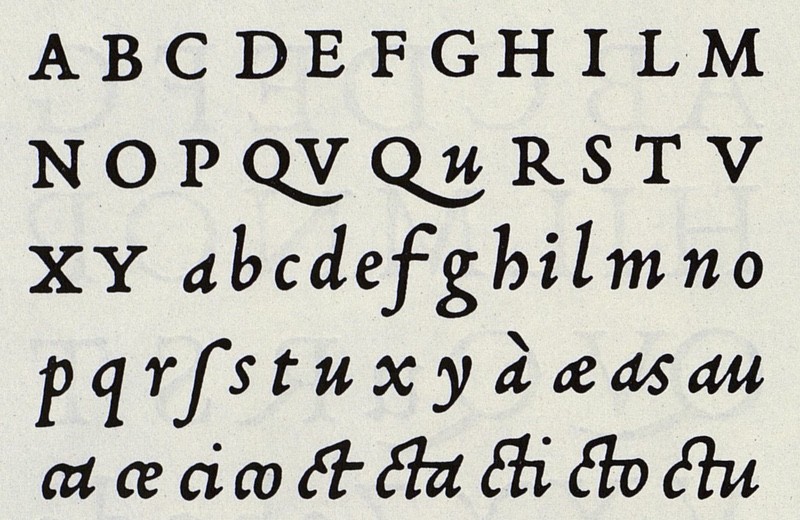 A B C D E F G H I L M
N O P QV Qu R S T V
X Y a b c d e f g h i l m n o
p q r ſ s t u x y à æ as au
ca ce ci co ct cta cti cto ctu